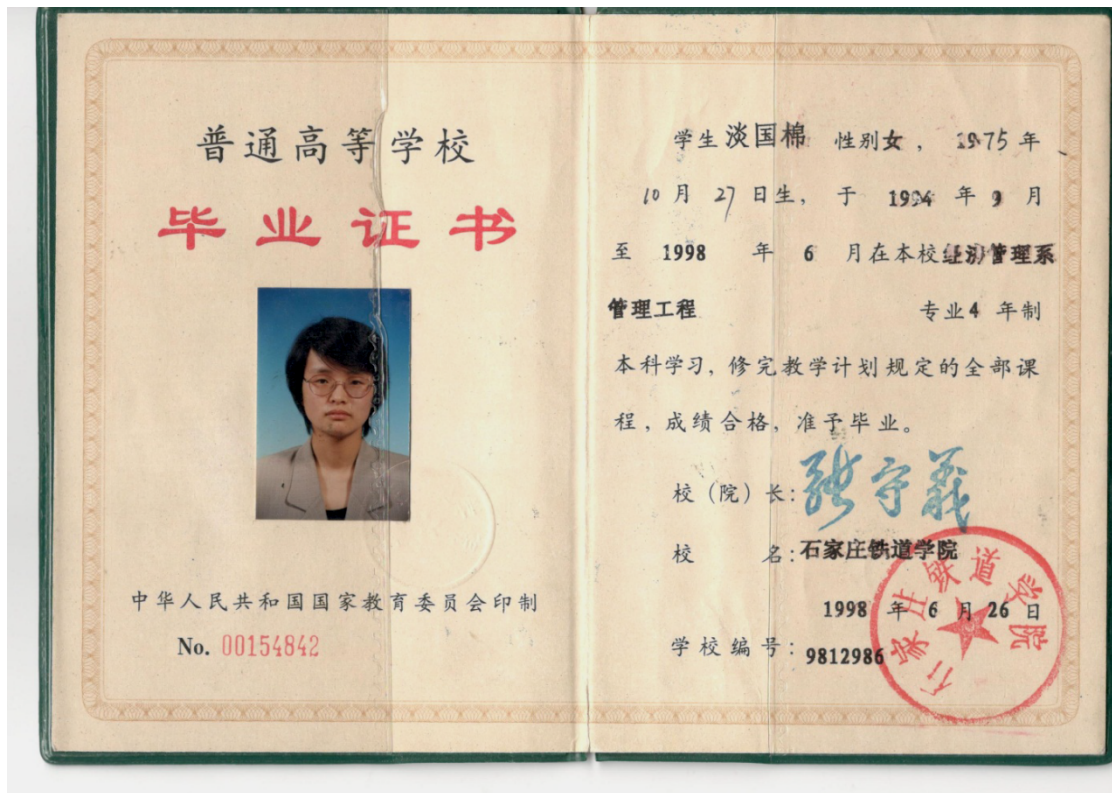 普通高等学校
毕业证书
中华人民共和国国家教育委员会印制
No. 00154842
学生淡国棉 性别女， 1975年
10月 27日生， 于 1994 年 9 月
至 1998 年 6 月在本校经济管理系
管理工程 专业4 年制
本科学习，修完教学计划规定的全部课
程，成绩合格，准予毕业。
校（院）长：张守義
校 名：石家庄铁道学院
1998 年 6 月 26 日
学校编号：9812986
石家庄铁道学院